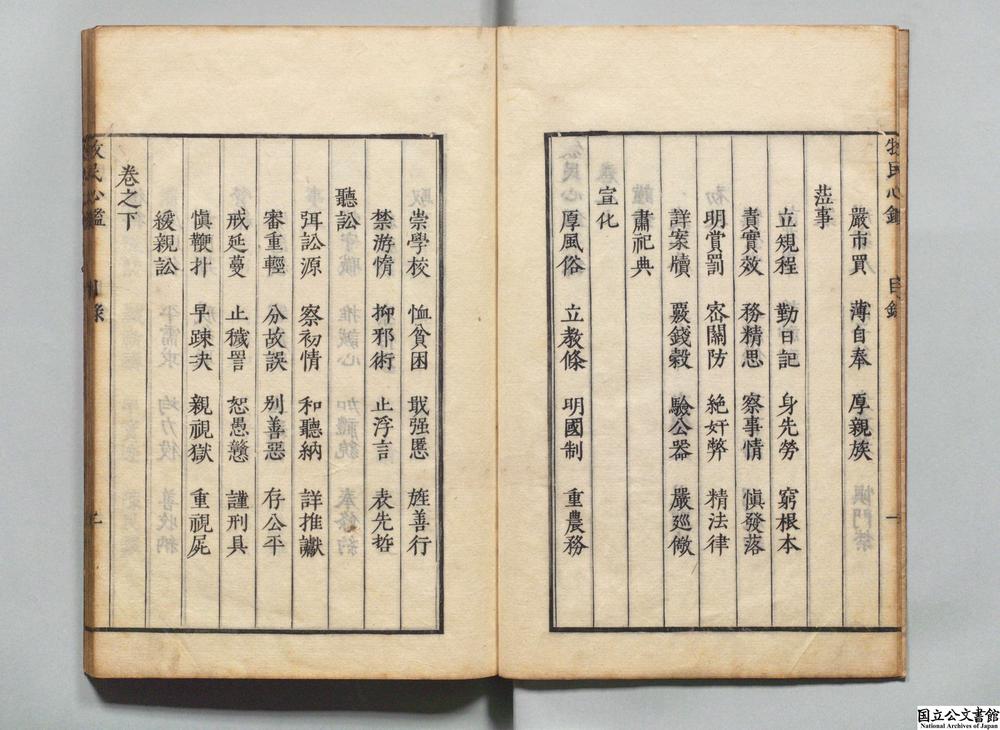 牧民心鑑 目錄 一
嚴市買 薄自奉 厚親族
蒞事
立規程 勤日記 身先勞 窮根本
責實效 務精思 察事情 愼發落
明賞罰 密關防 絶奸弊 精法律
詳案牘 覈錢穀 驗公器 嚴廵儆
肅祀典
宣化
厚風俗 立教條 明國制 重農務
崇學校 恤貧困 戢强慝 旌善行
禁游惰 抑邪術 止浮言 表先哲
聽訟
弭訟源 察初情 和聽納 詳推讞
審重輕 分故誤 别善惡 存公平
戒延蔓 止穢詈 恕愚戆 謹刑具
愼鞭扑 早踈决 親視獄 重視屍
緩親訟
卷之下
牧民心鑑 目錄 二
国立公文書館
National Archives of Japan